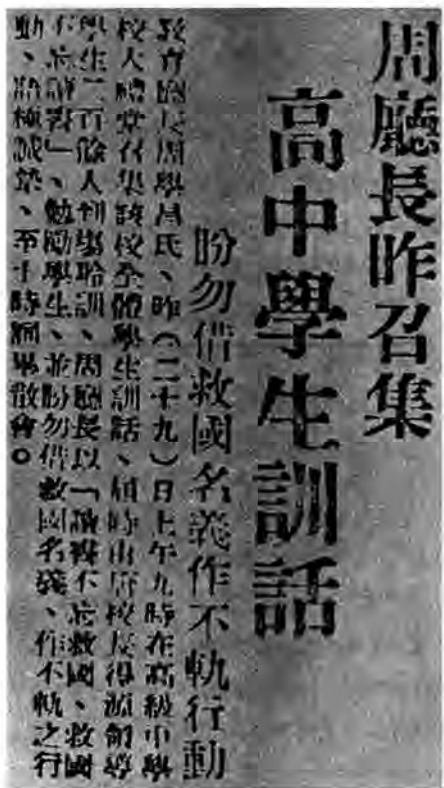 周廳長昨召集
高中學生訓話
盼勿借救國名義作不軌行動
教育廳長周學昌氏、昨(二十九)日上午九時在高級中學
校大禮堂召集該校全體學生訓話、屆時由唐校長得源領導
學生二百餘人到場聆訓、周廳長以「讀書不忘救國、救國
不忘讀書」、勉勵學生、並盼勿借救國名義、作不軌之行
動、語極誠摯、至十時畢散會。